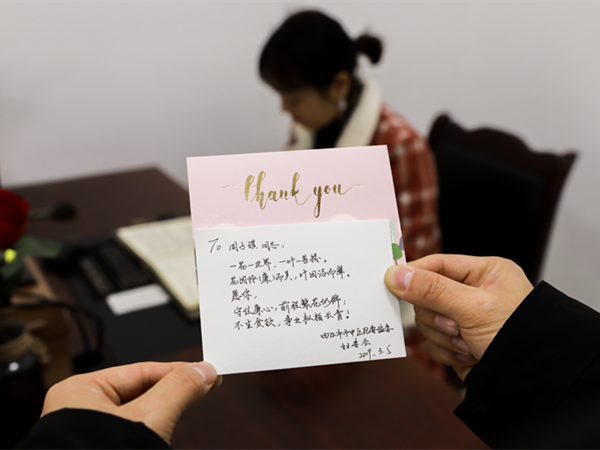 Thank you
To 周子琪 同志：
一花一世界，一叶一菩提。
花因怜(廉)而美，叶因洁而馨。
愿你，
守住廉心，前程繁花似锦；
不生贪欲，事业松柏长青！
内江市市中区纪委监委
妇委会
2019.3.5